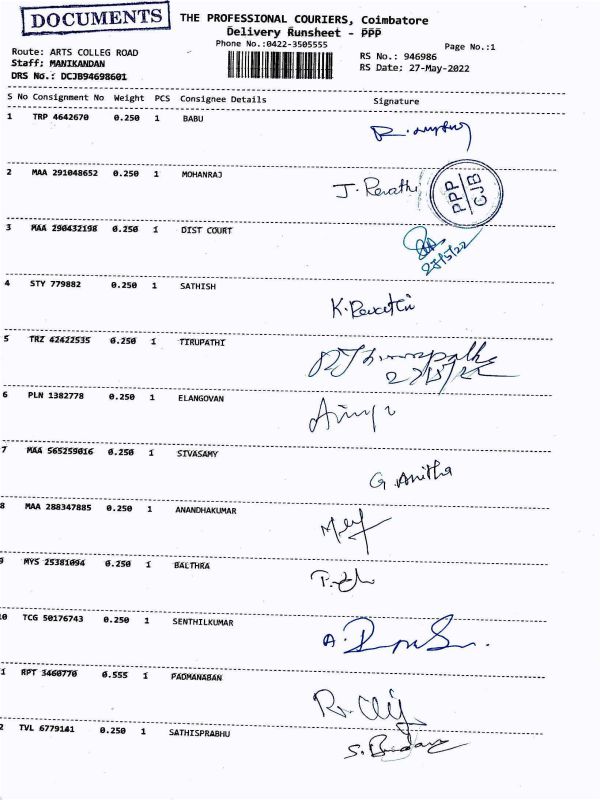 DOCUMENTS
THE PROFESSIONAL COURIERS, Coimbatore
Delivery Runsheet - PPP
Phone No.:0422-3505555
Page No.:1
Route: ARTS COLLEG ROAD
Staff: MANIKANDAN
DRS No.: DCJB94698601
RS No.: 946986
RS Date; 27-May-2022
S No Consignment No Weight PCS Consignee Details Signature
1 TRP 4642670 0.250 1 BABU
2 MAA 291048652 0.250 1 MOHANRAJ
J. Revathi
PPP
CJB
3 MAA 290432198 0.250 1 DIST COURT
27/5/22
4 STY 779882 0.250 1 SATHISH
K. Revathi
5 TRZ 42422535 0.250 1 TIRUPATHI
27/5/22
6 PLN 1382778 0.250 1 ELANGOVAN
7 MAA 565259016 0.250 1 SIVASAMY
G. Anitha
8 MAA 288347885 0.250 1 ANANDHAKUMAR
9 MYS 25381094 0.250 1 BALTHRA
10 TCG 50176743 0.250 1 SENTHILKUMAR
1 RPT 3460770 0.555 1 PADMANABAN
2 TVL 6779141 0.250 1 SATHISPRABHU